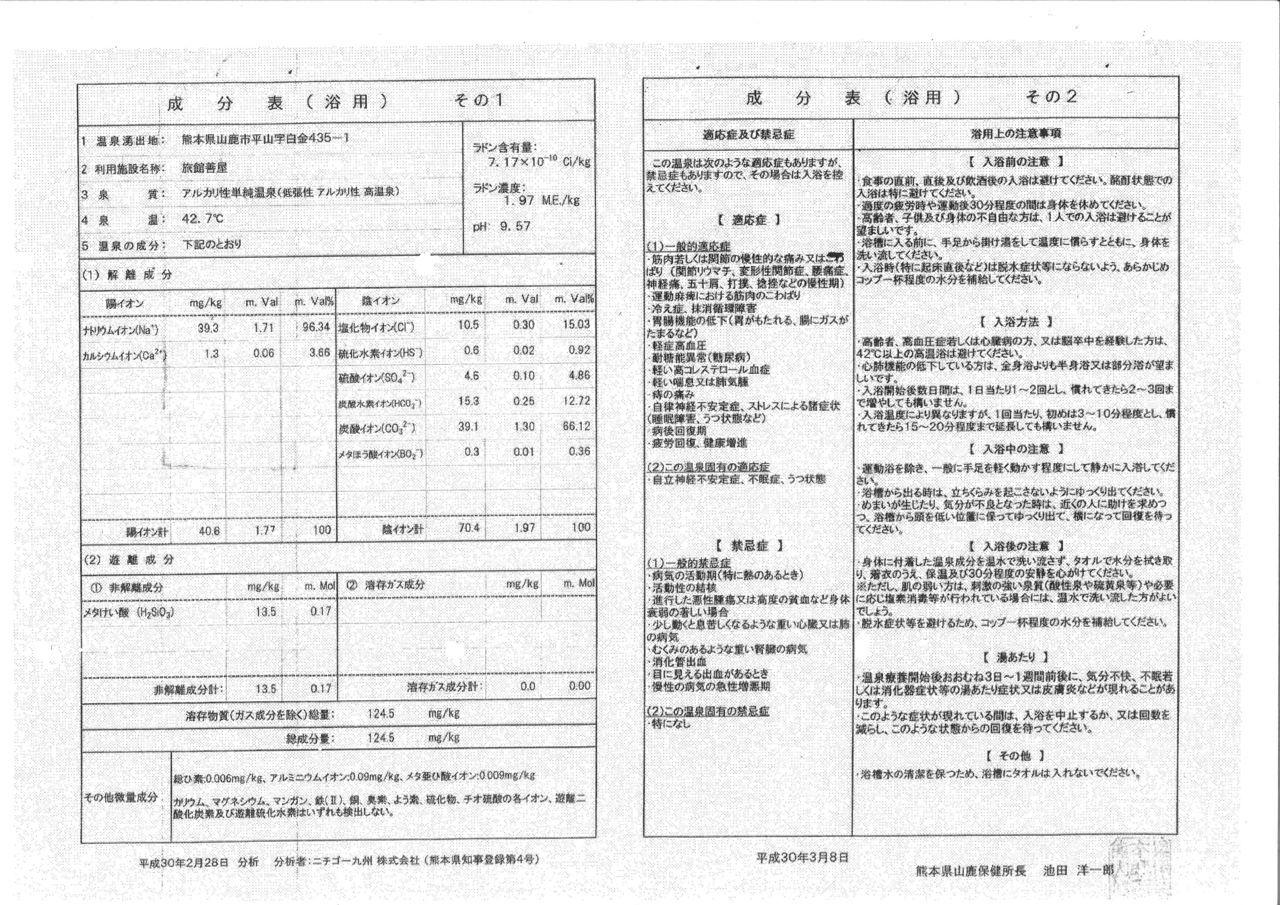 成 分 表 ( 浴 用 ) その1
1 温泉湧出地: 熊本県山鹿市平山字白金435-1
2 利用施設名称: 旅館善屋
3 泉 質: アルカリ性単純温泉(低張性 アルカリ性 高温泉)
4 泉 温: 42.7℃
5 温泉の成分: 下記のとおり
ラドン含有量:
7.17×10⁻¹⁰ Ci/kg
ラドン濃度:
1.97 M.E./kg
pH: 9.57
(1) 解 離 成 分
陽イオン mg/kg m. Val m. Val% 陰イオン mg/kg m. Val m. Val%
ナトリウムイオン(Na⁺) 39.3 1.71 96.34 塩化物イオン(Cl⁻) 10.5 0.30 15.03
カルシウムイオン(Ca²⁺) 1.3 0.06 3.66 硫化水素イオン(HS⁻) 0.6 0.02 0.92
硫酸イオン(SO₄²⁻) 4.6 0.10 4.86
炭酸水素イオン(HCO₃⁻) 15.3 0.25 12.72
炭酸イオン(CO₃²⁻) 39.1 1.30 66.12
メタほう酸イオン(BO₂⁻) 0.3 0.01 0.36
陽イオン計 40.6 1.77 100 陰イオン計 70.4 1.97 100
(2) 遊 離 成 分
① 非解離成分 mg/kg m. Mol ② 溶存ガス成分 mg/kg m. Mol
メタけい酸 (H₂SiO₃) 13.5 0.17
非解離成分計: 13.5 0.17 溶存ガス成分計: 0.0 0.00
溶存物質(ガス成分を除く)総量: 124.5 mg/kg
総成分量: 124.5 mg/kg
その他微量成分
総ひ素:0.006mg/kg、アルミニウムイオン:0.09mg/kg、メタ亜ひ酸イオン:0.009mg/kg
カリウム、マグネシウム、マンガン、鉄(Ⅱ)、銅、臭素、よう素、硫化物、チオ硫酸の各イオン、遊離二
酸化炭素及び遊離硫化水素はいずれも検出しない。
平成30年2月28日 分析 分析者:ニチゴー九州 株式会社 (熊本県知事登録第4号)
成 分 表 ( 浴 用 ) その2
適応症及び禁忌症
この温泉は次のような適応症もありますが、
禁忌症もありますので、その場合は入浴を控
えてください。
【 適応症 】
(1)一般的適応症
・筋肉若しくは関節の慢性的な痛み又はこわ
ばり (関節リウマチ、変形性関節症、腰痛症、
神経痛、五十肩、打撲、捻挫などの慢性期)
・運動麻痺における筋肉のこわばり
・冷え症、抹消循環障害
・胃腸機能の低下(胃がもたれる、腸にガスが
たまるなど)
・軽症高血圧
・耐糖能異常(糖尿病)
・軽い高コレステロール血症
・軽い喘息又は肺気腫
・痔の痛み
・自律神経不安定症、ストレスによる諸症状
(睡眠障害、うつ状態など)
・病後回復期
・疲労回復、健康増進
(2)この温泉固有の適応症
・自立神経不安定症、不眠症、うつ状態
【 禁忌症 】
(1)一般的禁忌症
・病気の活動期(特に熱のあるとき)
・活動性の結核
・進行した悪性腫瘍又は高度の貧血など身体
衰弱の著しい場合
・少し動くと息苦しくなるような重い心臓又は肺
の病気
・むくみのあるような重い腎臓の病気
・消化管出血
・目に見える出血があるとき
・慢性の病気の急性増悪期
(2)この温泉固有の禁忌症
・特になし
浴用上の注意事項
【 入浴前の注意 】
・食事の直前、直後及び飲酒後の入浴は避けてください。酩酊状態での
入浴は特に避けてください。
・過度の疲労時や運動後30分程度の間は身体を休めてください。
・高齢者、子供及び身体の不自由な方は、1人での入浴は避けることが
望ましいです。
・浴槽に入る前に、手足から掛け湯をして温度に慣らすとともに、身体を
洗い流してください。
・入浴時(特に起床直後など)は脱水症状等にならないよう、あらかじめ
コップ一杯程度の水分を補給してください。
【 入浴方法 】
・高齢者、高血圧症若しくは心臓病の方、又は脳卒中を経験した方は、
42℃以上の高温浴は避けてください。
・心肺機能の低下している方は、全身浴よりも半身浴又は部分浴が望ま
しいです。
・入浴開始後数日間は、1日当たり1~2回とし、慣れてきたら2~3回ま
で増やしても構いません。
・入浴温度により異なりますが、1回当たり、初めは3~10分程度とし、慣
れてきたら15~20分程度まで延長しても構いません。
【 入浴中の注意 】
・運動浴を除き、一般に手足を軽く動かす程度にして静かに入浴してくだ
さい。
・浴槽から出る時は、立ちくらみを起こさないようにゆっくり出てください。
・めまいが生じたり、気分が不良となった時は、近くの人に助けを求めつ
つ、浴槽から頭を低い位置に保ってゆっくり出て、横になって回復を待っ
てください。
【 入浴後の注意 】
・身体に付着した温泉成分を温水で洗い流さず、タオルで水分を拭き取
り、着衣のうえ、保温及び30分程度の安静を心がけてください。
※ただし、肌の弱い方は、刺激の強い泉質(酸性泉や硫黄泉等)や必要
に応じ塩素消毒等が行われている場合には、温水で洗い流した方がよい
でしょう。
・脱水症状等を避けるため、コップ一杯程度の水分を補給してください。
【 湯あたり 】
・温泉療養開始後おおむね3日~1週間前後に、気分不快、不眠若
しくは消化器症状等の湯あたり症状又は皮膚炎などが現れることがあ
ります。
・このような症状が現れている間は、入浴を中止するか、又は回数を
減らし、このような状態からの回復を待ってください。
【 その他 】
・浴槽水の清潔を保つため、浴槽にタオルは入れないでください。
平成30年3月8日
熊本県山鹿保健所長 池田 洋一郎